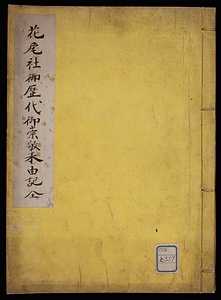 花尾社御歴代御崇敬来由記全